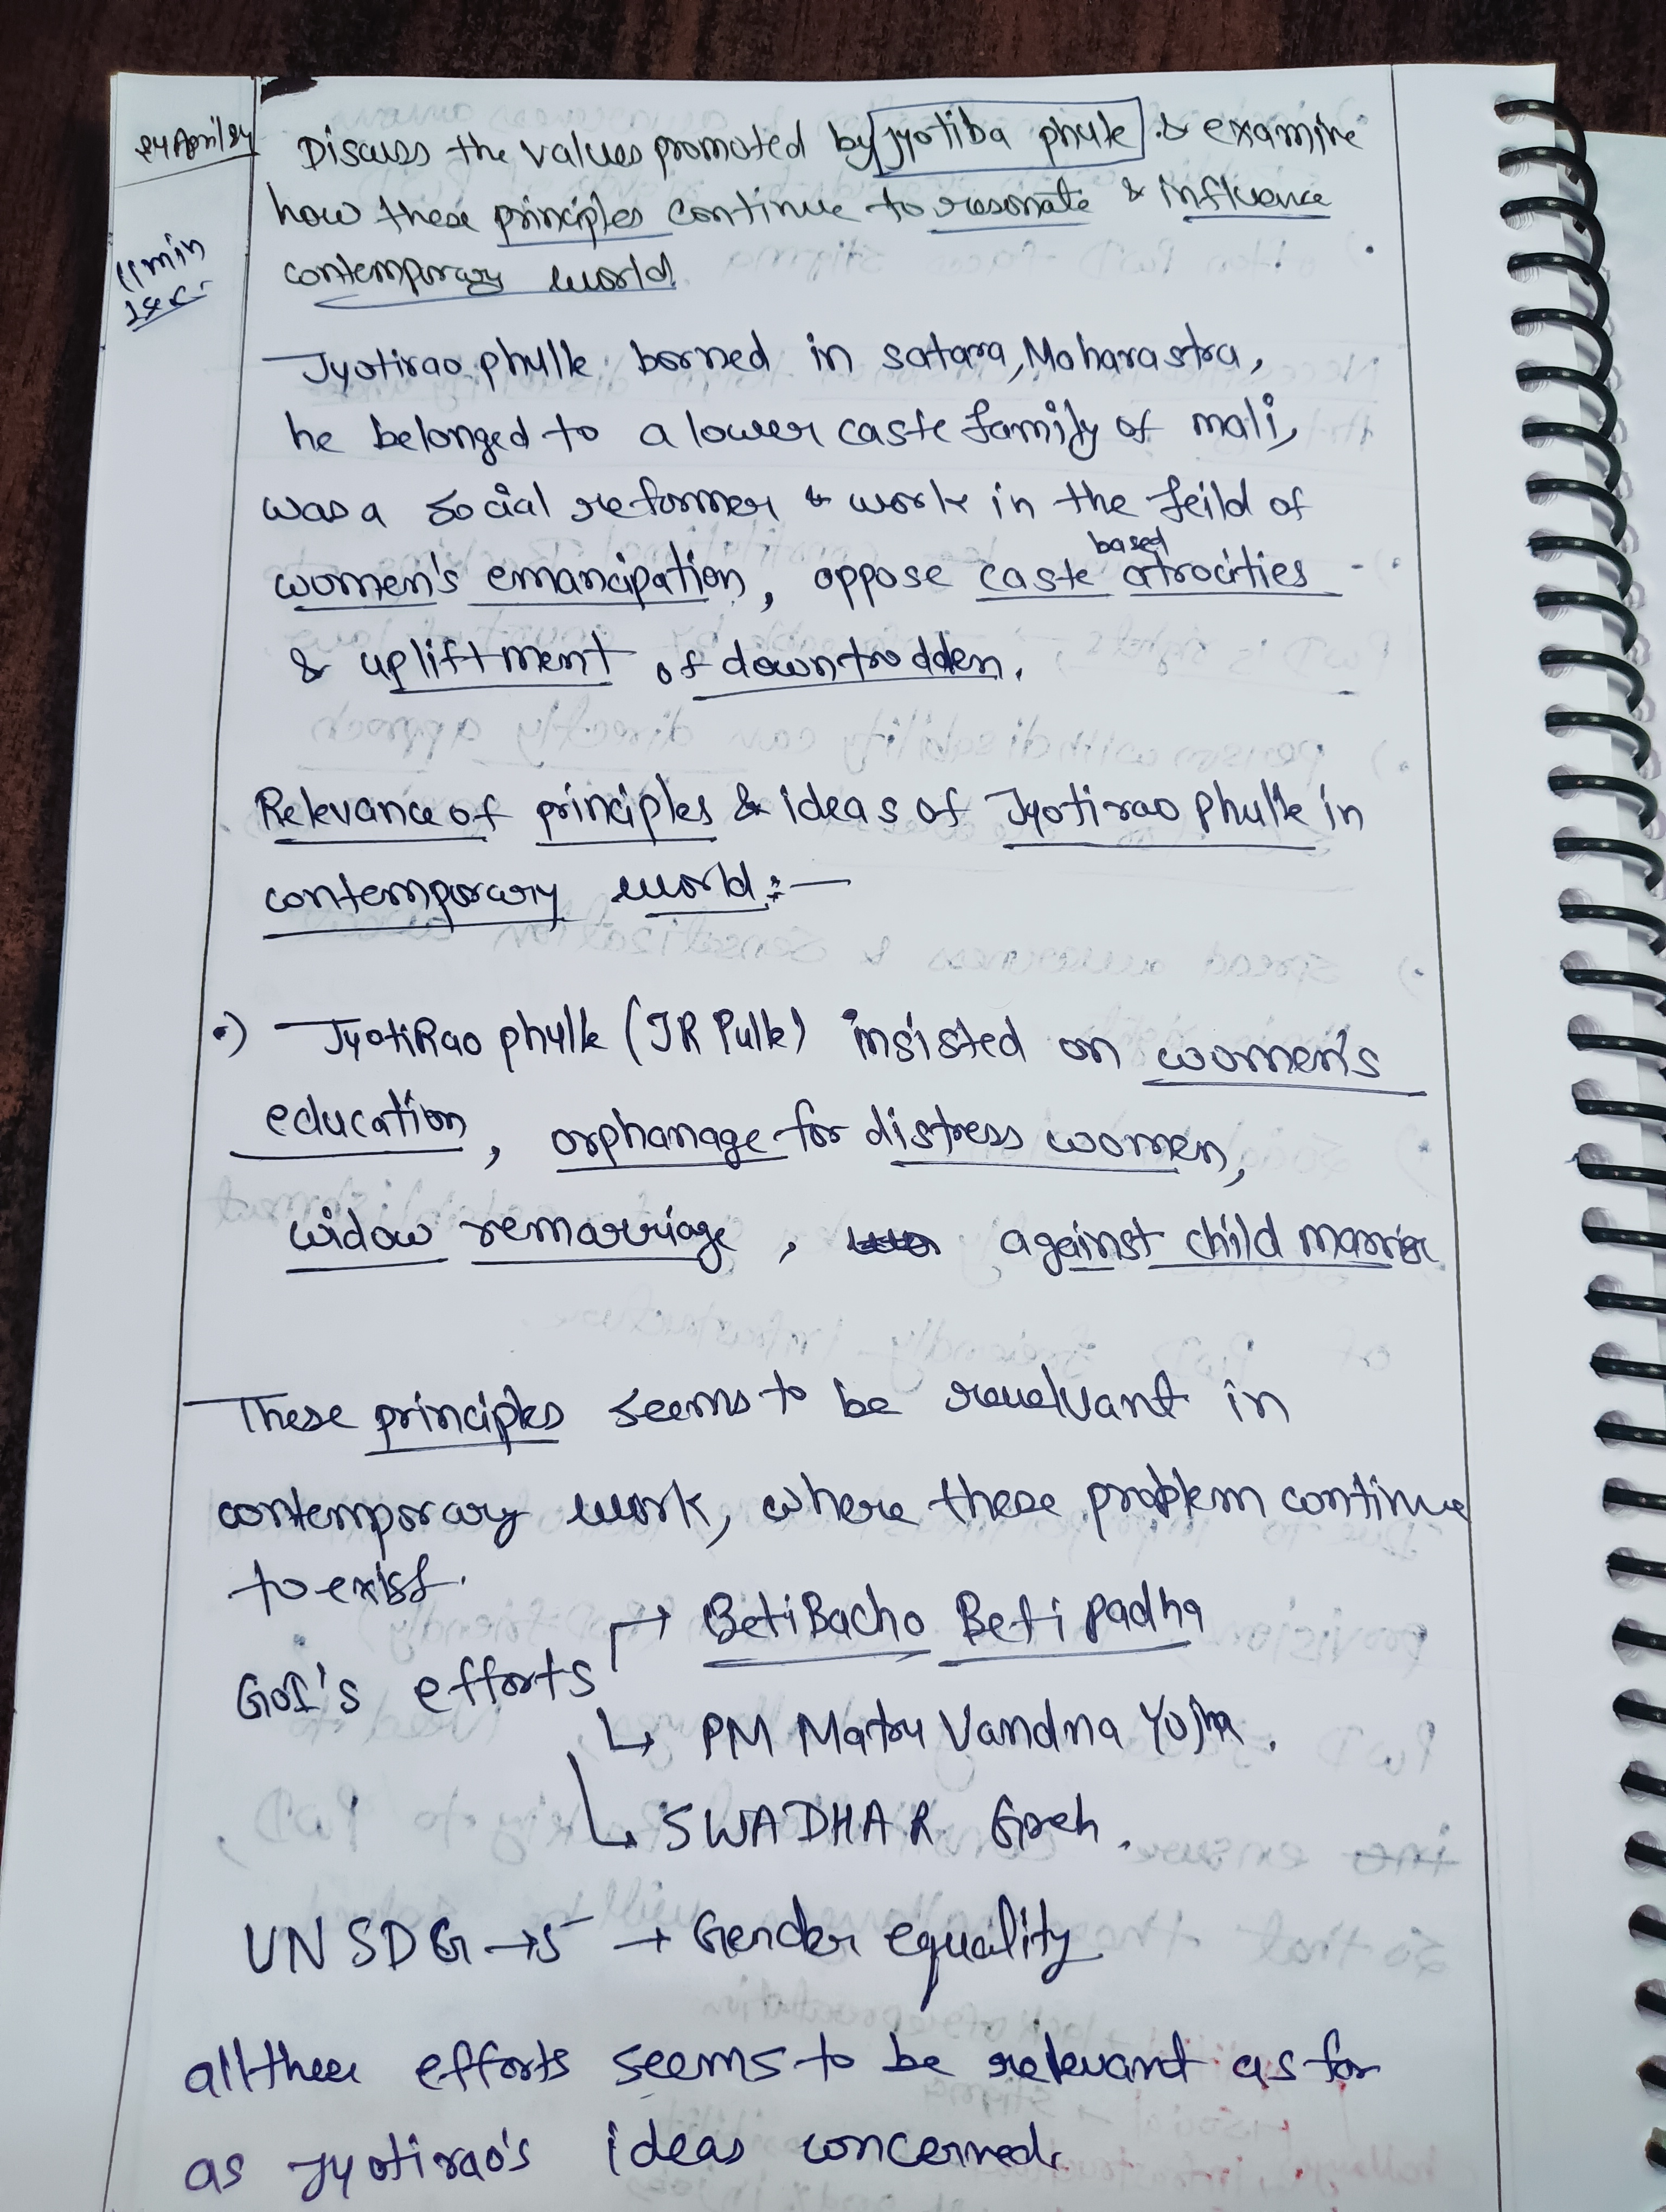 24 April/24
Discuss the values promoted by Jyotiba phule & examine
how these principles continue to resonate & influence
11 min
contemporary world
Jyotirao phulle borned in satara, Maharastra,
he belonged to a lower caste family of mali,
was a social reformer & work in the feild of
based
women's emancipation, oppose caste atrocities
& upliftment of downtrodden.
Relevance of principles & ideas of Jyotirao Phulle in
contemporary world :-
•) JyotiRao phulle (JR Pulle) insisted on women's
education, orphanage for distress women,
widow remarriage, against child marriage
These principles seems to be revelvant in
contemporary work, where these problem continue
to exist.
→ Beti Bacho Beti padha
GoI's efforts
↳ PM Matru Vandna Yojna.
↳ SWADHAR Greh.
UN SDG → 5 → Gender equality
all these efforts seems to be relevant as far
as Jyotirao's ideas concerned.